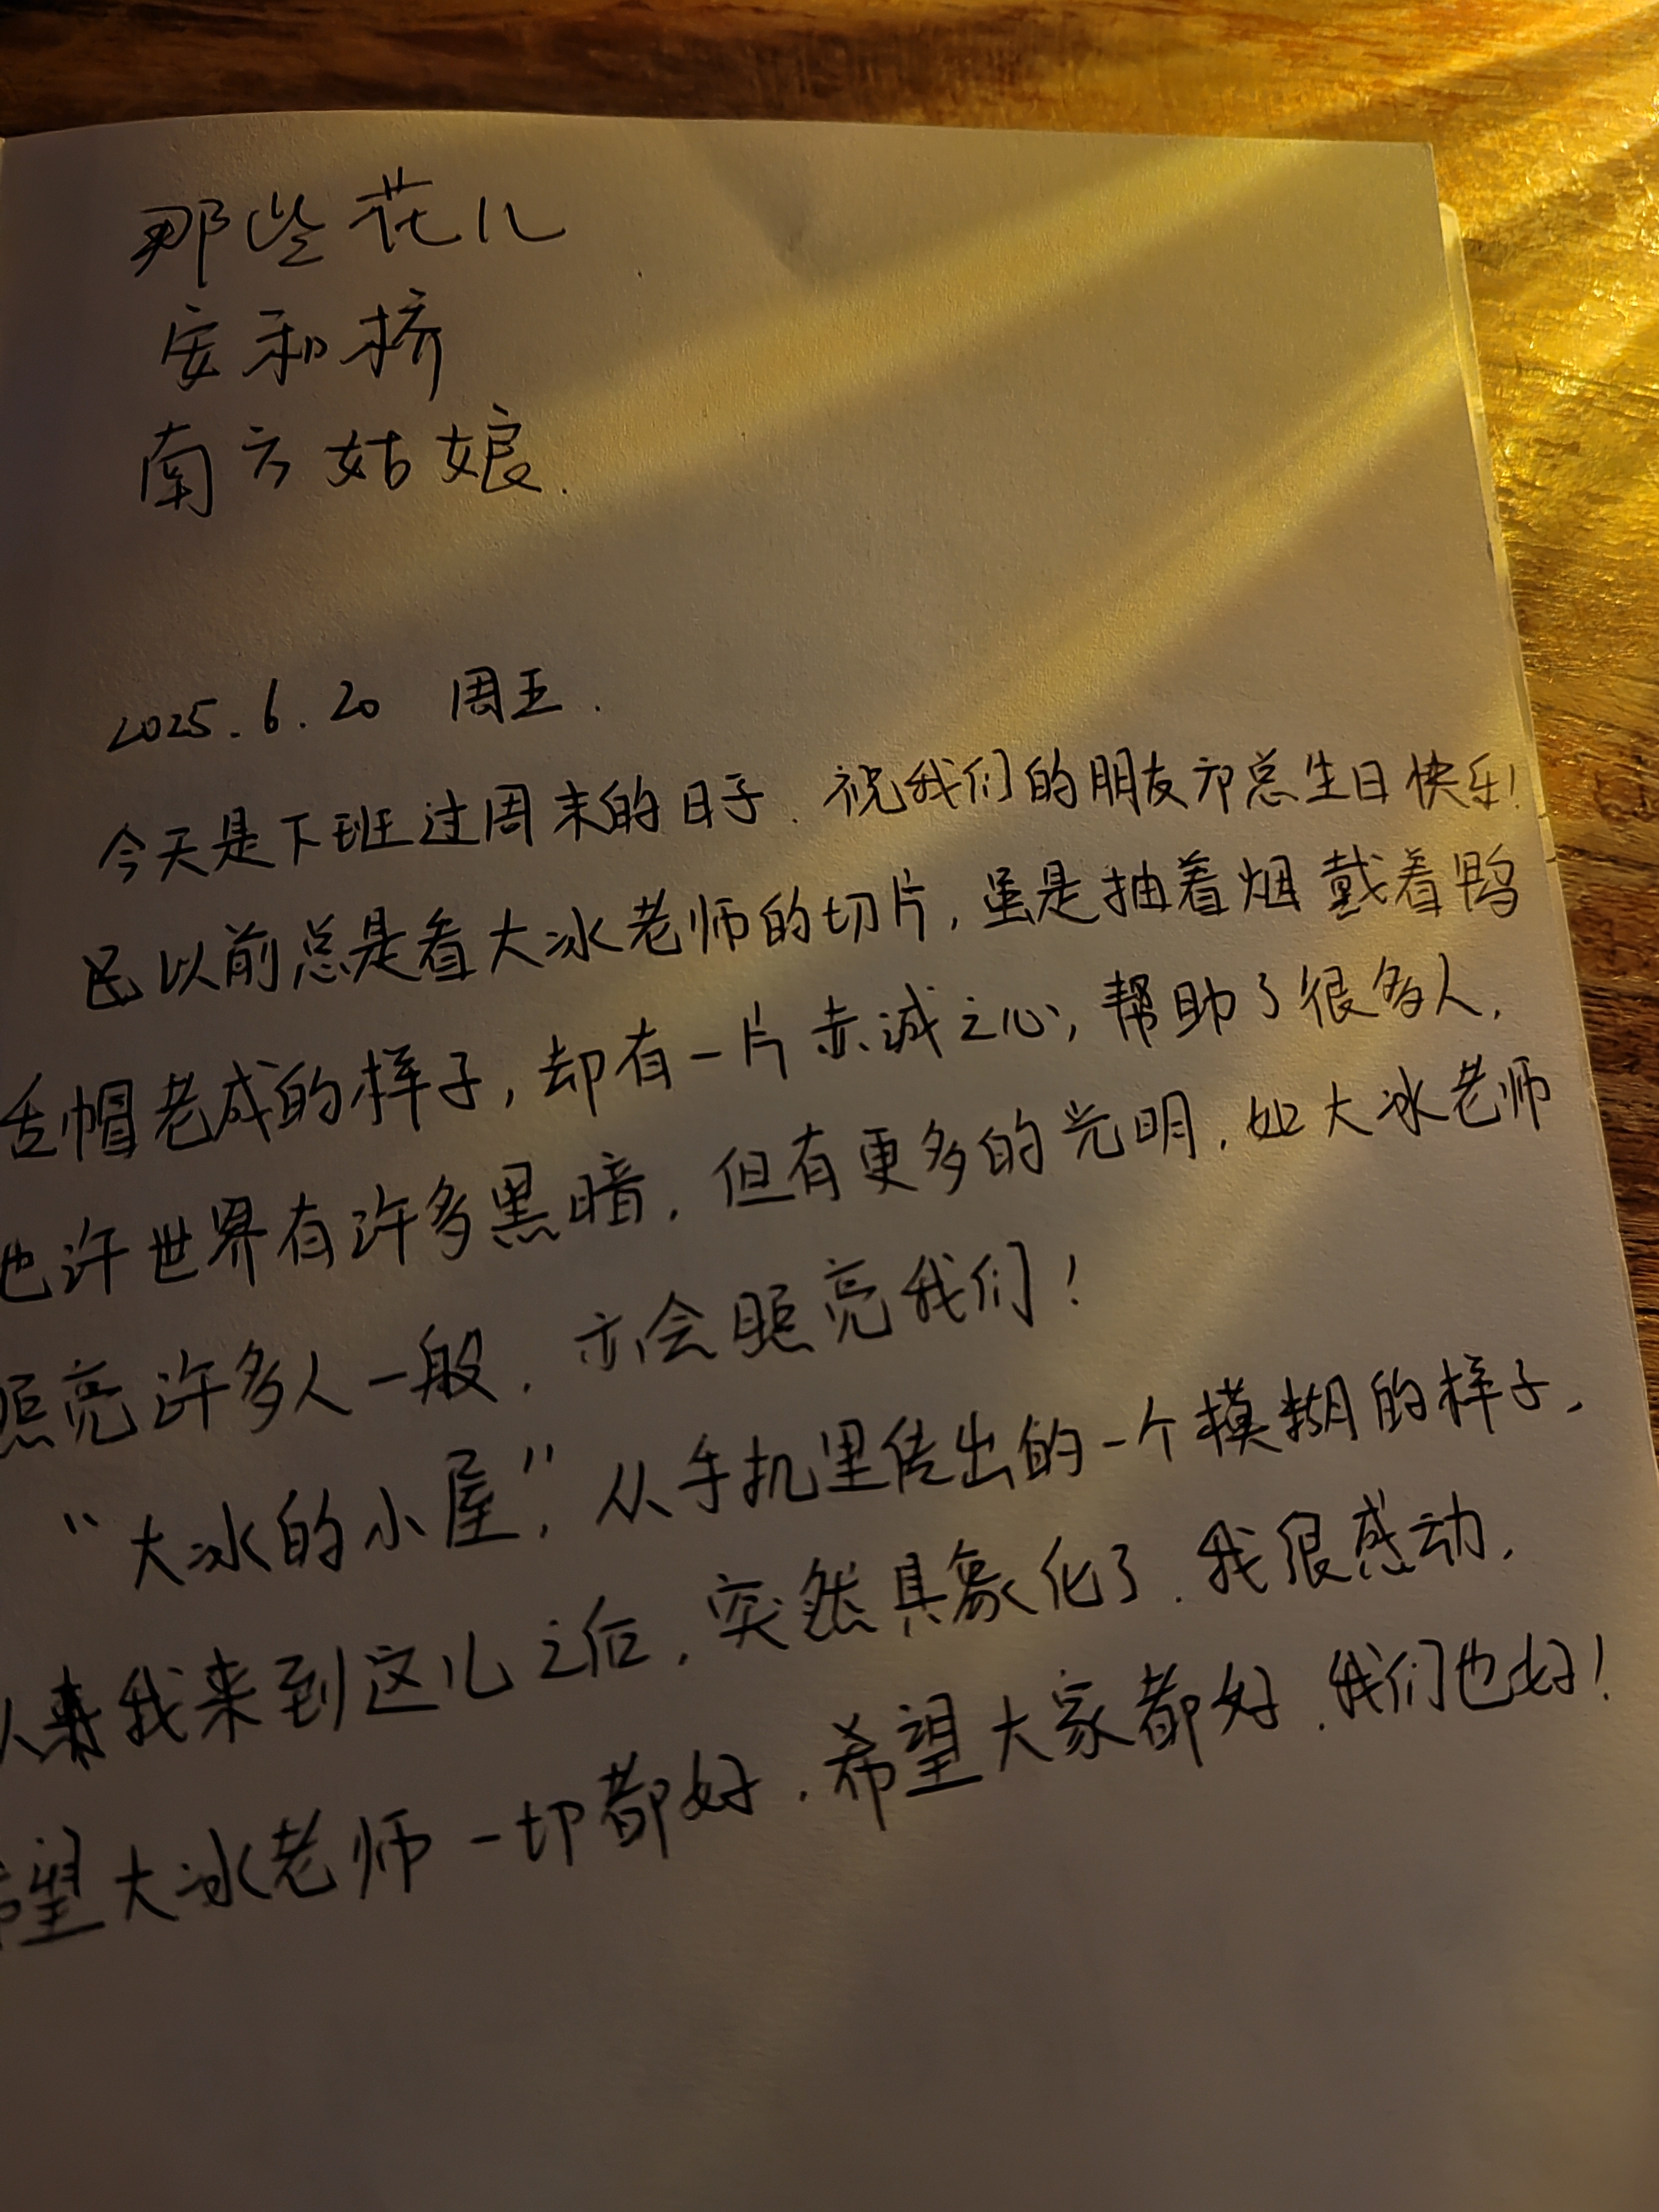 那些花儿
安和桥
南方姑娘.
2025.6.20 周五.
今天是下班过周末的日子.祝我们的朋友邝总生日快乐!
以前总是看大冰老师的切片,虽是抽着烟戴着鸭
舌帽老成的样子,却有一片赤诚之心,帮助了很多人.
也许世界有许多黑暗.但有更多的光明.如大冰老师
照亮许多人一般.亦会照亮我们!
“大冰的小屋”,从手机里传出的一个模糊的样子.
我来到这儿之后.突然具象化了.我很感动.
希望大冰老师一切都好.希望大家都好.我们也好!